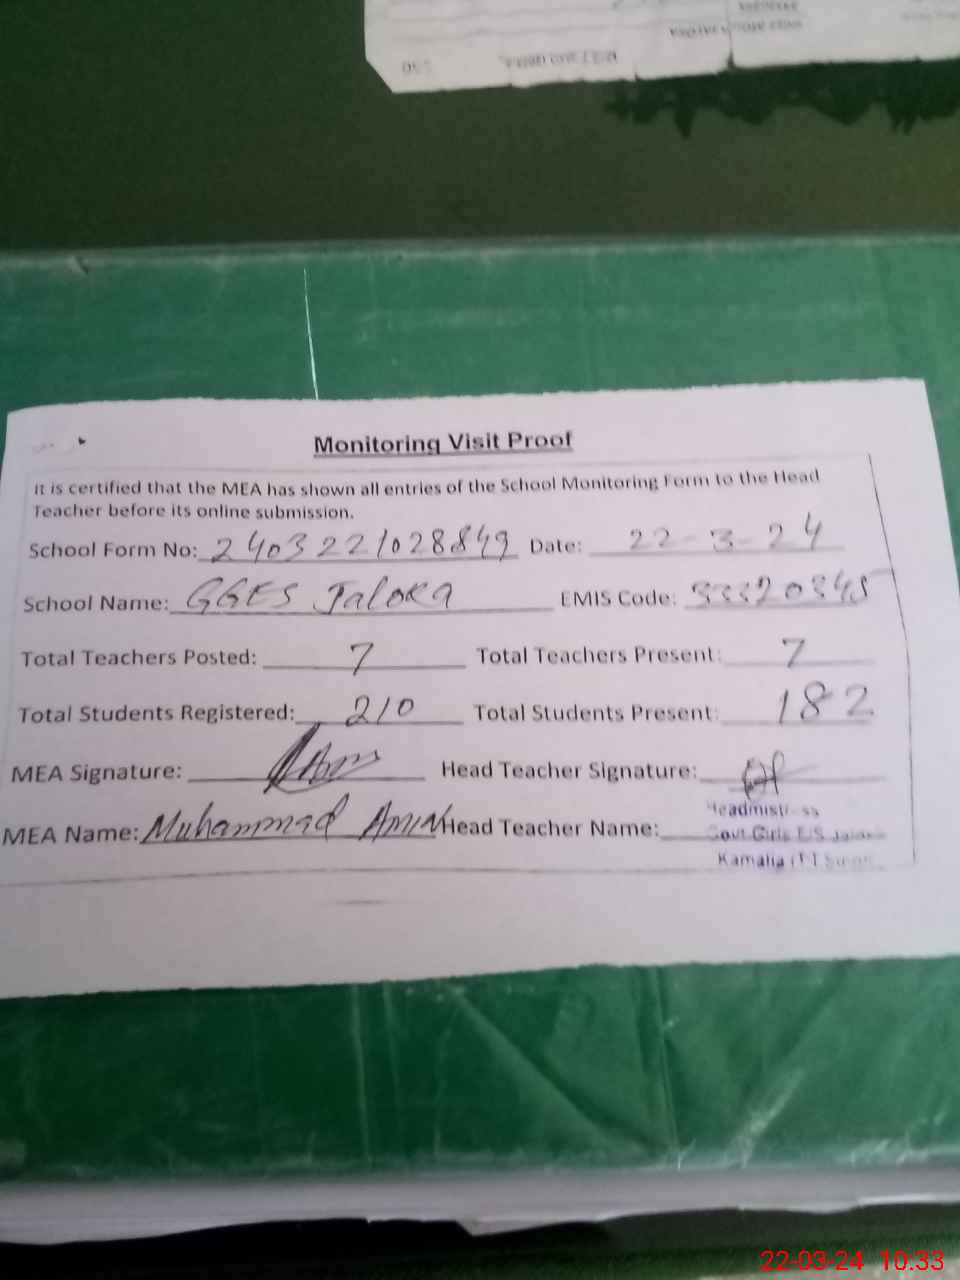 Monitoring Visit Proof
It is certified that the MEA has shown all entries of the School Monitoring Form to the Head
Teacher before its online submission.
School Form No: 2403221028849 Date: 22-3-24
School Name: GGES Jaloka EMIS Code: 33320345
Total Teachers Posted: 7 Total Teachers Present: 7
Total Students Registered: 210 Total Students Present: 182
MEA Signature: Head Teacher Signature:
MEA Name: Muhammad Amin Head Teacher Name:
Headmistress
Govt Girls E/S
Kamalia
22-03-24 10:33